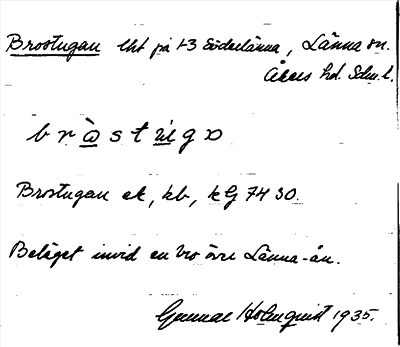 Brostugan lht på 1-3 Söderlänna, Länna sn.
Åkers hd. Sdm. l.
bròstùgo
Brostugan ek, kb, kG 7430.
Beläget invid en bro över Länna-ån.
Gunnar Holmquist 1935.